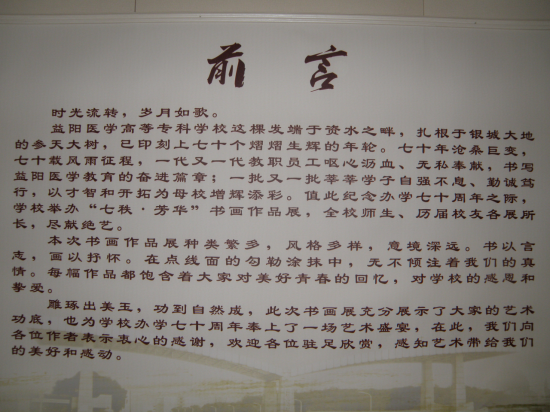 前言
时光流转，岁月如歌。
益阳医学高等专科学校这棵发端于资水之畔，扎根于银城大地
的参天大树，已印刻上七十个熠熠生辉的年轮。七十年沧桑巨变，
七十载风雨征程，一代又一代教职员工呕心沥血、无私奉献，书写
益阳医学教育的奋进篇章；一批又一批莘莘学子自强不息、勤诚笃
行，以才智和开拓为母校增辉添彩。值此纪念办学七十周年之际，
学校举办“七秩·芳华”书画作品展，全校师生、历届校友各展所
长，尽献绝艺。
本次书画作品展种类繁多，风格多样，意境深远。书以言
志，画以抒怀。在点线面的勾勒涂抹中，无不倾注着我们的真
情。每幅作品都饱含着大家对美好青春的回忆，对学校的感恩和
挚爱。
雕琢出美玉，功到自然成，此次书画展充分展示了大家的艺术
功底，也为学校办学七十周年奉上了一场艺术盛宴，在此，我们向
各位作者表示衷心的感谢，欢迎各位驻足欣赏，感知艺术带给我们
的美好和感动。